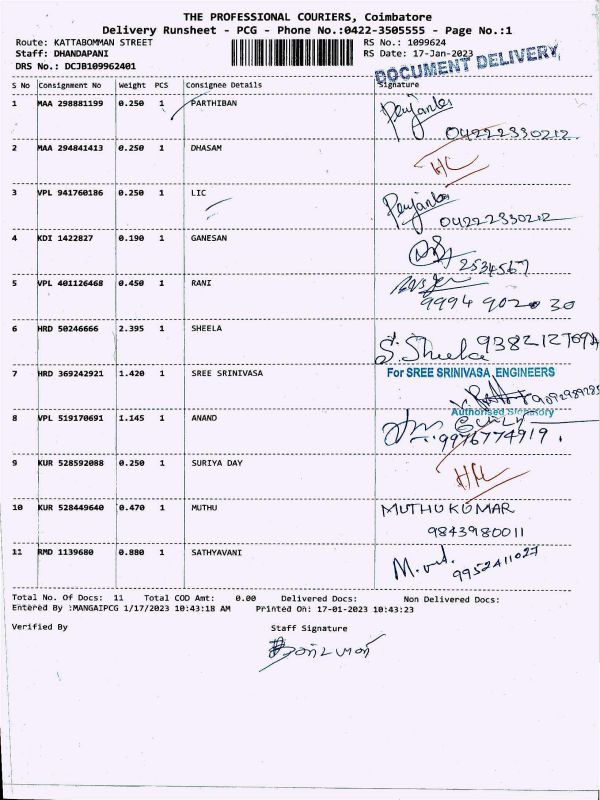 THE PROFESSIONAL COURIERS, Coimbatore
Delivery Runsheet - PCG - Phone No.:0422-3505555 - Page No.:1
Route: KATTABOMMAN STREET RS No.: 1099624
Staff: DHANDAPANI RS Date: 17-Jan-2023
DRS No.: DCJB109962401
DOCUMENT DELIVERY
S No Consignment No Weight PCS Consignee Details Signature
1 MAA 298881199 0.250 1 PARTHIBAN
04222330212
2 MAA 294841413 0.250 1 DHASAM
3 VPL 941760186 0.250 1 LIC
04222330212
4 KDI 1422827 0.190 1 GANESAN
2534567
5 VPL 401126468 0.450 1 RANI
9994 902 30
6 HRD 50246666 2.395 1 SHEELA
S. Sheela
7 HRD 369242921 1.420 1 SREE SRINIVASA For SREE SRINIVASA ENGINEERS
Authorised Signatory
8 VPL 519170691 1.145 1 ANAND
9976774919
9 KUR 528592088 0.250 1 SURIYA DAY
10 KUR 528449640 0.470 1 MUTHU MUTHUKUMAR
9843980011
11 RMD 1139680 0.880 1 SATHYAVANI
9952411027
Total No. Of Docs: 11 Total COD Amt: 0.00 Delivered Docs: Non Delivered Docs:
Entered By :MANGAIPCG 1/17/2023 10:43:18 AM Printed On: 17-01-2023 10:43:23
Verified By Staff Signature